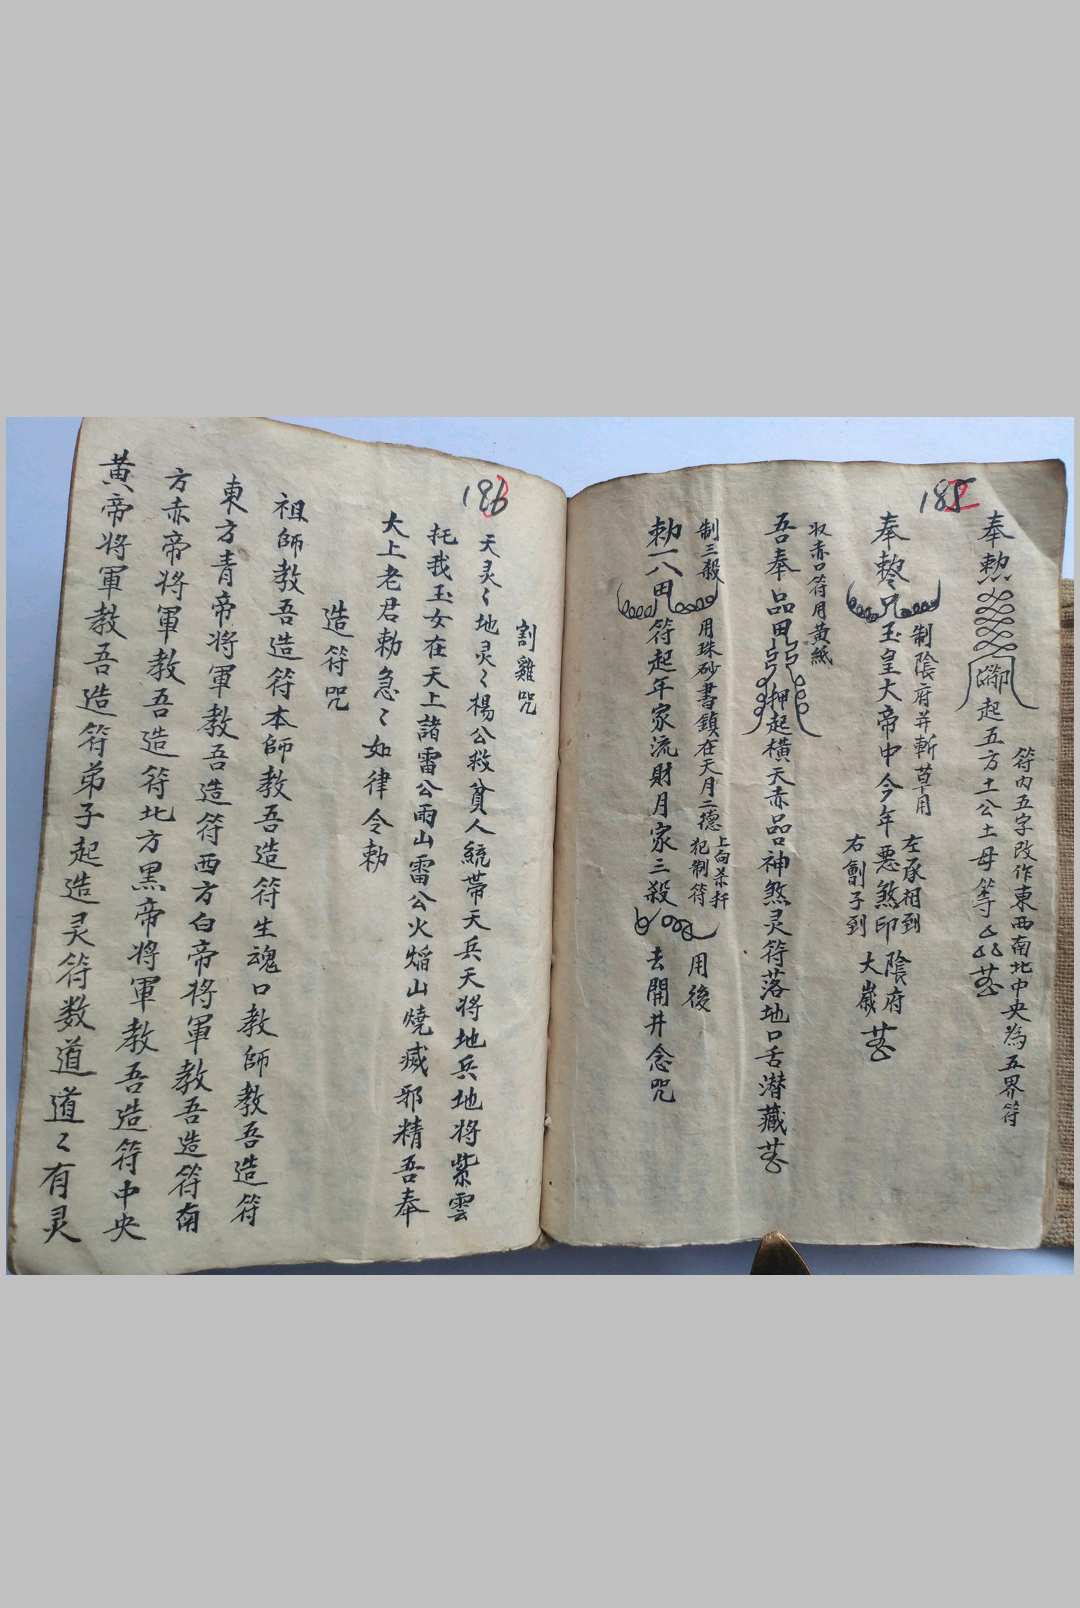 185
奉勅 起五方土公土母等
符内五字改作東西南北中央為五界符
奉 玉皇大帝中今年惡煞印
制陰府并斬草用
左承相到
右劊子到
陰府
大嵗
收赤口符用黃紙
吾奉品田 押起橫天赤品神煞灵符落地口舌潜藏
制三殺 用珠砂書鎮在天月二德 犯制符 用後
勅 符起年家流財月家三殺 去開井念咒
186
割雞咒
天灵〻地灵〻楊公救貧人統帶天兵天将地兵地将紫雲
托我玉女在天上諸雷公雨山雷公火焰山燒滅邪精吾奉
大上老君勅急〻如律令勅
造符咒
祖師教吾造符本師教吾造符生魂口教師教吾造符
東方青帝将軍教吾造符西方白帝将軍教吾造符南
方赤帝将軍教吾造符北方黑帝将軍教吾造符中央
黃帝将軍教吾造符弟子起造灵符数道道〻有灵